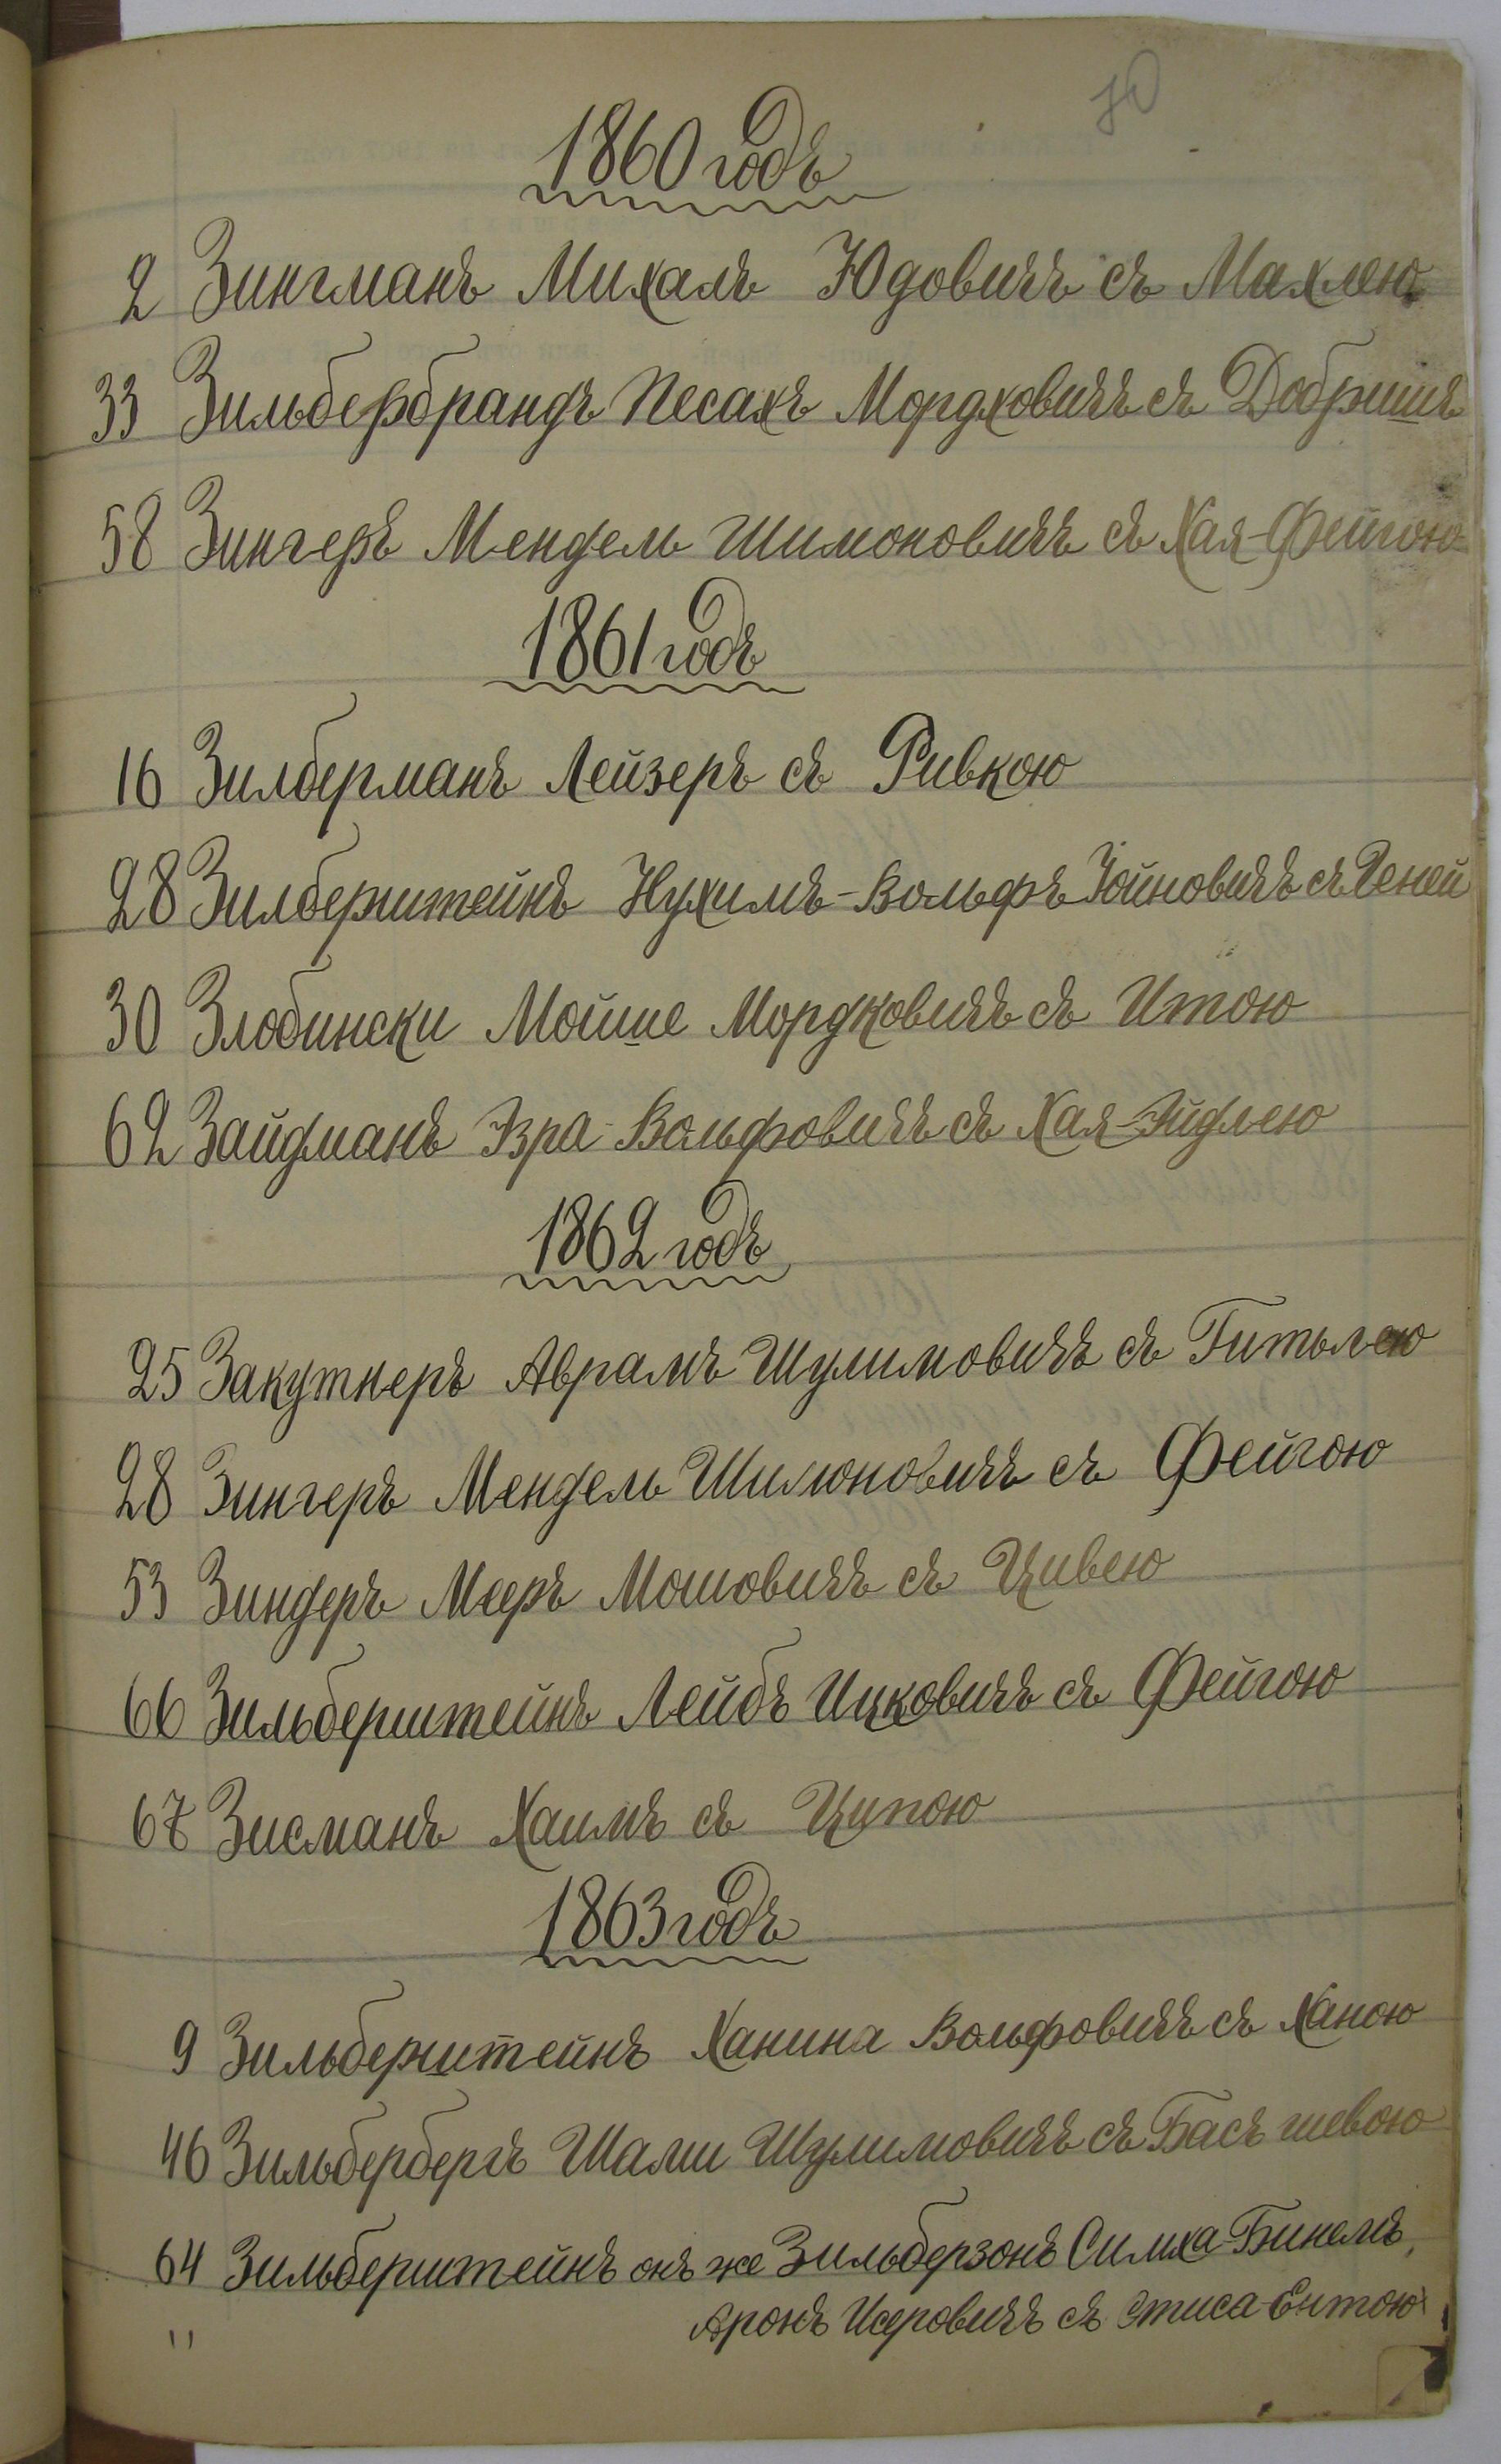 70
1860 годъ
2 Зингманъ Михаль Юдовичъ съ Махлею
33 Зильбербрандъ Песахъ Мордковичъ съ Добришъ
58 Зингеръ Мендель Шимоновичъ съ Хая-Фейгою
1861 годъ
16 Зилберманъ Лейзеръ съ Ривкою
28 Зилберштейнъ Нухимъ-Вольфъ Юйновичъ съ Геней
30 Злобински Мойше Мордковичъ съ Итою
62 Зайдманъ Эзра-Вольфовичъ съ Хая-Эйдлею
1862 годъ
25 Закутнеръ Аврамъ Шулимовичъ съ Гитьлею
28 Зингеръ Мендель Шимоновичъ съ Фейгою
53 Зиндеръ Мееръ Мошовичъ съ Цивею
66 Зильберштейнъ Лейбъ Ицковичъ съ Фейгою
67 Зисманъ Хаимъ съ Ципою
1863 годъ
9 Зильберштейнъ Ханина Вольфовичъ съ Ханою
46 Зильбербергъ Шами Шулимовичъ съ Басъ шевою
64 Зильберштейнъ онъ же Зильберзонъ Симха-Бинемъ,
" Аронъ Исеровичъ съ Этиса-Ентою